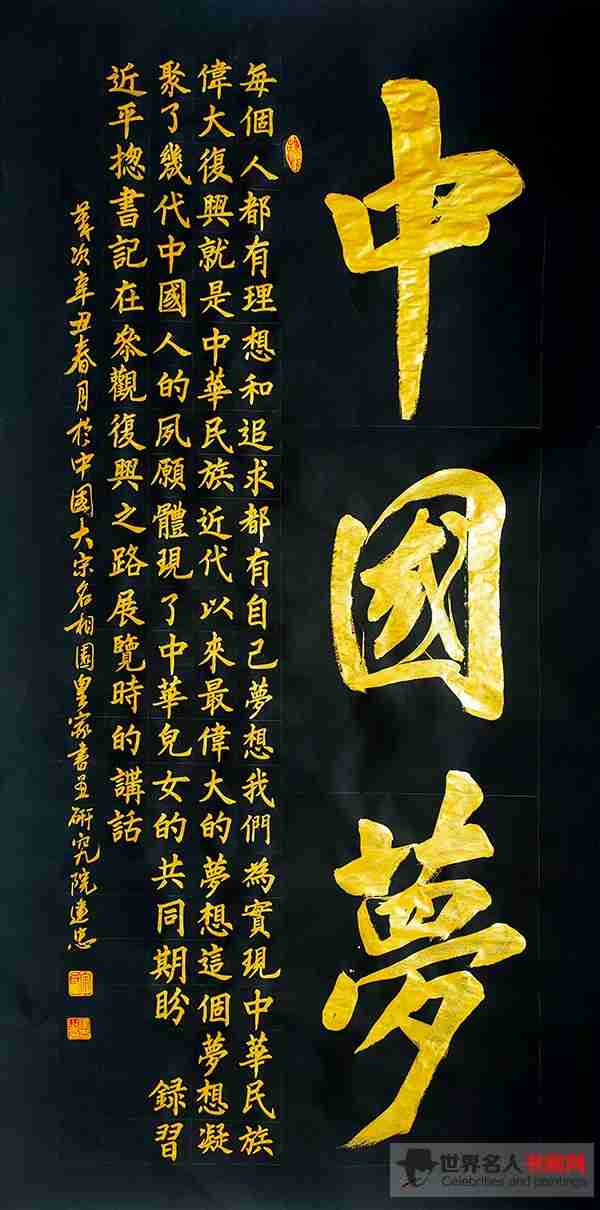 中國夢
每個人都有理想和追求都有自己夢想我們為實現中華民族
偉大復興就是中華民族近代以來最偉大的夢想這個夢想凝
聚了幾代中國人的夙願體現了中華兒女的共同期盼 録習
近平揔書記在參觀復興之路展覽時的講話
辛丑春月於中國大宗名相園皇家書畫研究院連忠
世界名人书画网
Celebrities and paintings